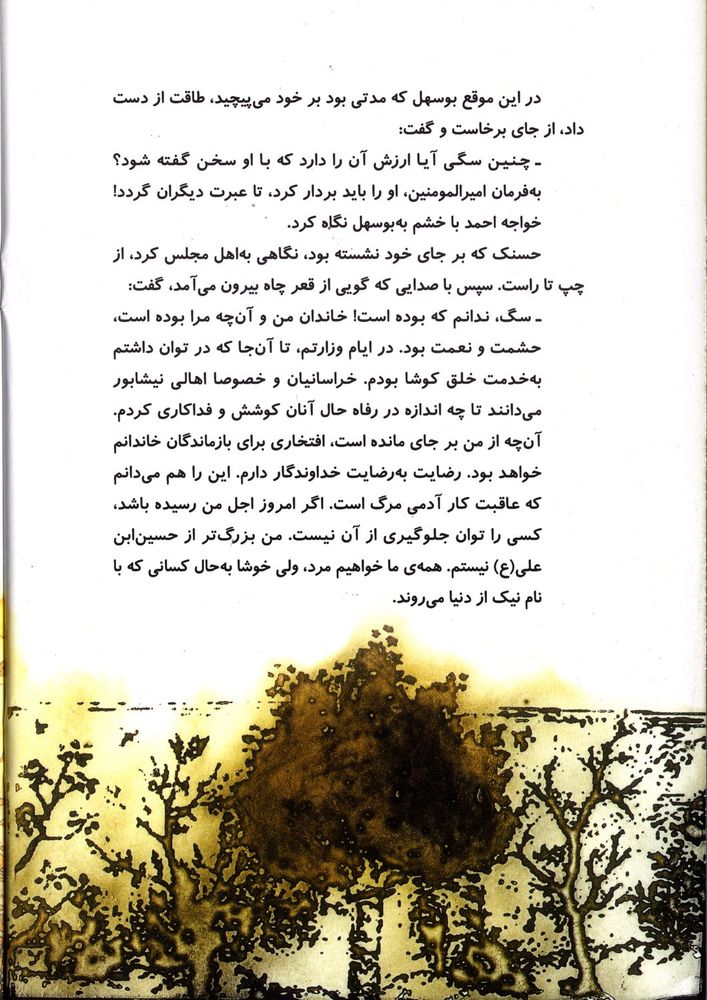 در این موقع بوسهل که مدتی بود بر خود می‌پیچید، طاقت از دست
داد، از جای برخاست و گفت:
ـ چنین سگی آیا ارزش آن را دارد که با او سخن گفته شود؟
به‌فرمان امیرالمومنین، او را باید بردار کرد، تا عبرت دیگران گردد!
خواجه احمد با خشم به‌بوسهل نگاه کرد.
حسنک که بر جای خود نشسته بود، نگاهی به‌اهل مجلس کرد، از
چپ تا راست. سپس با صدایی که گویی از قعر چاه بیرون می‌آمد، گفت:
ـ سگ، ندانم که بوده است! خاندان من و آن‌چه مرا بوده است،
حشمت و نعمت بود. در ایام وزارتم، تا آن‌جا که در توان داشتم
به‌خدمت خلق کوشا بودم. خراسانیان و خصوصا اهالی نیشابور
می‌دانند تا چه اندازه در رفاه حال آنان کوشش و فداکاری کردم.
آن‌چه از من بر جای مانده است، افتخاری برای بازماندگان خاندانم
خواهد بود. رضایت به‌رضایت خداوندگار دارم. این را هم می‌دانم
که عاقبت کار آدمی مرگ است. اگر امروز اجل من رسیده باشد،
کسی را توان جلوگیری از آن نیست. من بزرگ‌تر از حسین‌ابن
علی(ع) نیستم. همه‌ی ما خواهیم مرد، ولی خوشا به‌حال کسانی که با
نام نیک از دنیا می‌روند.